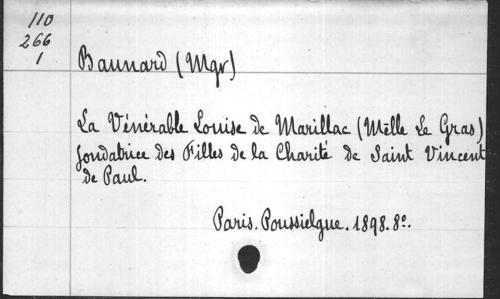 110
266
1
Baunard (Mgr)
La Vénérable Louise de Marillac (Melle Le Gras)
fondatrice des Filles de la Charité de Saint Vincent
de Paul.
Paris. Poussielgue. 1898. 8º.